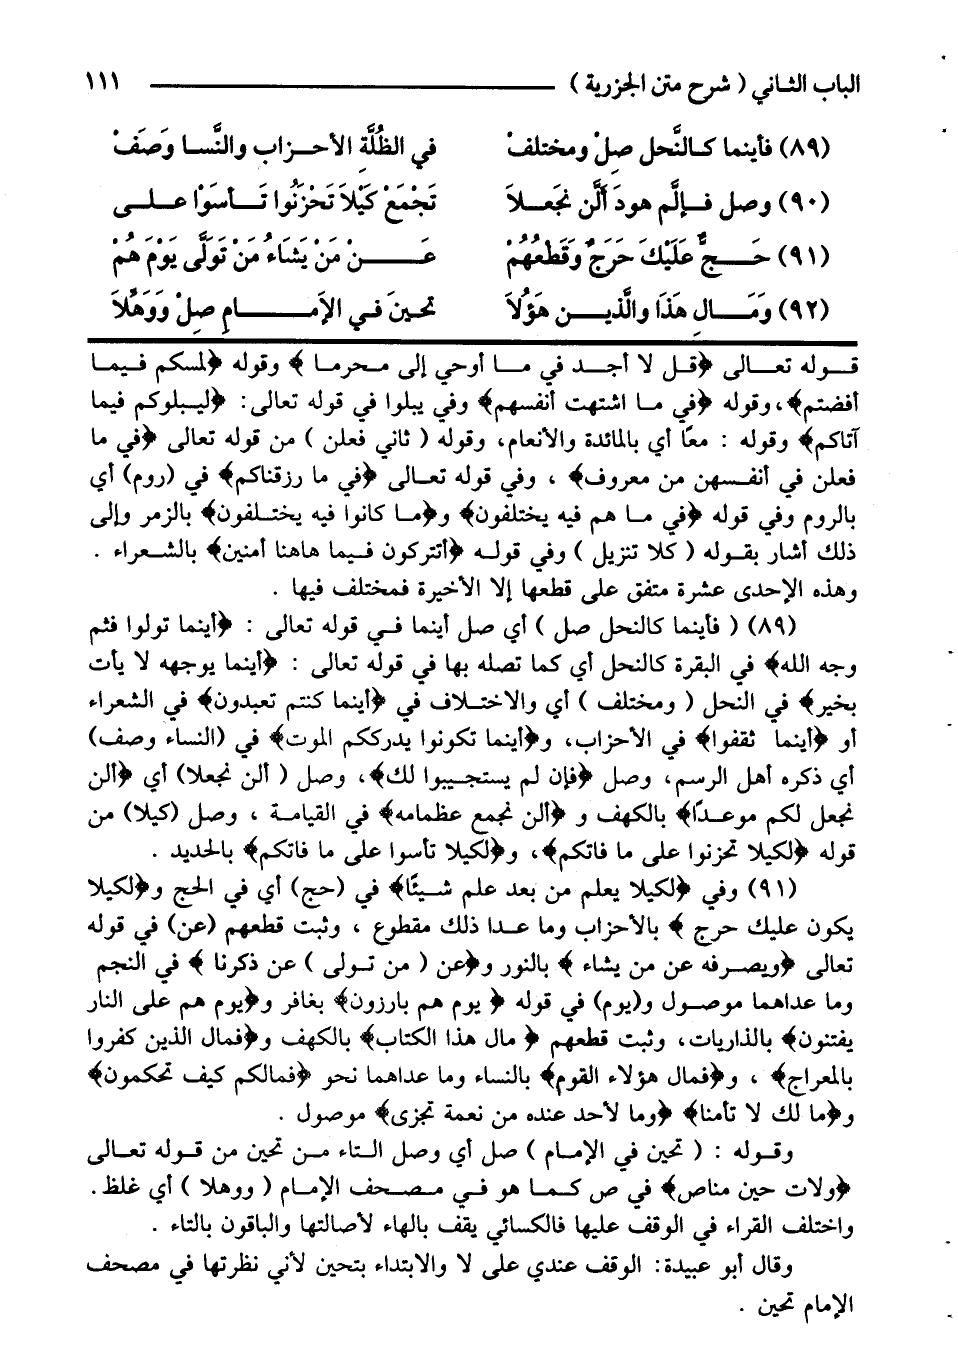 الباب الثاني ( شرح متن الجزرية ) ١١١
(٨٩) فأينما كالنَّحل صِلْ ومختلفْ في الظُلَّةِ الأحزاب والنَّسا وَصَفْ
(٩٠) وصل فإلَّم هودَ أَلَّن نجعلاَ تَجْمَعْ كَيْلاَ تَحْزَنُوا تَأسَوْا على
(٩١) حَجٌّ عَلَيْكَ حَرَجٌ وقَطْعُهُمْ عَنْ مَنْ يَشَاءُ مَنْ تَوَلَّى يَوْمَ هُمْ
(٩٢) وَمَالِ هَذَا والَّذين هَؤُلاَ تحينَ في الإمَامِ صِلْ وَوَهِّلاَ
قوله تعالى ﴿قل لا أجد في ما أوحي إلى محرما ﴾ وقوله ﴿لمسكم فيما
أفضتم﴾، وقوله ﴿في ما اشتهت أنفسهم﴾ وفي يبلوا في قوله تعالى: ﴿ليبلوكم فيما
آتاكم﴾ وقوله : معًا أي بالمائدة والأنعام، وقوله ( ثاني فعلن ) من قوله تعالى ﴿في ما
فعلن في أنفسهن من معروف﴾ ، وفي قوله تعالى ﴿في ما رزقناكم﴾ في (روم) أي
بالروم وفي قوله ﴿في ما هم فيه يختلفون﴾ و﴿ما كانوا فيه يختلفون﴾ بالزمر وإلى
ذلك أشار بقوله ( كلا تنزيل ) وفي قوله ﴿أتتركون فيما هاهنا أمنين﴾ بالشعراء .
وهذه الإحدى عشرة متفق على قطعها إلا الأخيرة فمختلف فيها .
(٨٩) ( فأينما كالنحل صل ) أي صل أينما في قوله تعالى : ﴿أينما تولوا فثم
وجه الله﴾ في البقرة كالنحل أي كما تصله بها في قوله تعالى : ﴿أينما يوجهه لا يأت
بخير﴾ في النحل ( ومختلف ) أي والاختلاف في ﴿أينما كنتم تعبدون﴾ في الشعراء
أو ﴿أينما ثقفوا﴾ في الأحزاب، و﴿أينما تكونوا يدرككم الموت﴾ في (النساء وصف)
أي ذكره أهل الرسم، وصل ﴿فإن لم يستجيبوا لك﴾، وصل ( ألن نجعلا) أي ﴿ألن
نجعل لكم موعدًا﴾ بالكهف و ﴿ألن نجمع عظمامه﴾ في القيامة ، وصل (كيلا) من
قوله ﴿لكيلا تحزنوا على ما فاتكم﴾، و﴿لكيلا تأسوا على ما فاتكم﴾ بالحديد .
(٩١) وفي ﴿لكيلا يعلم من بعد علم شيئًا﴾ في (حج) أي في الحج و﴿لكيلا
يكون عليك حرج ﴾ بالأحزاب وما عدا ذلك مقطوع ، وثبت قطعهم (عن) في قوله
تعالى ﴿ويصرفه عن من يشاء ﴾ بالنور و﴿عن ( من تولى ) عن ذكرنا ﴾ في النجم
وما عداهما موصول و(يوم) في قوله ﴿ يوم هم بارزون﴾ بغافر و﴿يوم هم على النار
يفتنون﴾ بالذاريات، وثبت قطعهم ﴿ مال هذا الكتاب﴾ بالكهف و﴿فمال الذين كفروا
بالمعراج﴾ ، و﴿فمال هؤلاء القوم﴾ بالنساء وما عداهما نحو ﴿فمالكم كيف تحكمون﴾
و﴿ما لك لا تأمنا﴾ ﴿وما لأحد عنده من نعمة تجزى﴾ موصول .
وقوله : ( تحين في الإمام ) صل أي وصل التاء من تحين من قوله تعالى
﴿ولات حين مناص﴾ في ص كما هو في مصحف الإمام ( ووهلا ) أي غلظ.
واختلف القراء في الوقف عليها فالكسائي يقف بالهاء لأصالتها والباقون بالتاء .
وقال أبو عبيدة: الوقف عندي على لا والابتداء بتحين لأني نظرتها في مصحف
الإمام تحين .